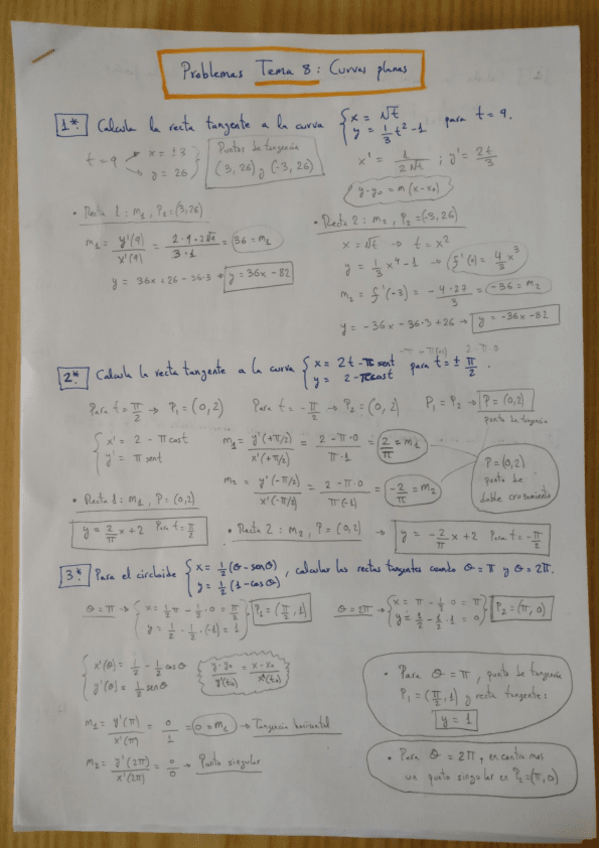 Problemas Tema 8: Curvas planas
1*. Calcula la recta tangente a la curva { x = √t para t = 9.
y = 1/3 t² - 1
t = 9 → x = ±3
→ y = 26
Puntos de tangencia
(3, 26) y (-3, 26)
x' = 1/(2√t) ; y' = 2t/3
y-y₀ = m(x-x₀)
• Recta 1: m₁, P₁=(3,26)
m₁ = y'(9)/x'(9) = 2·9·2√9/3·1 = 36 = m₁
y = 36x + 26 - 36·3 → y = 36x - 82
• Recta 2: m₂, P₂=(-3,26)
x = √t → t = x²
y = 1/3 x⁴ - 1 → f'(x) = 4/3 x³
m₂ = f'(-3) = -4·27/3 = -36 = m₂
y = -36x - 36·3 + 26 → y = -36x - 82
2*. Calcula la recta tangente a la curva { x = 2t - π sent para t = ± π/2.
y = 2 - π cost
Para t = π/2 → P₁ = (0,2) Para t = -π/2 → P₂ = (0,2) P₁ = P₂ → P = (0,2)
punto de tangencia
{ x' = 2 - π cost
y' = π sent
m₁ = y'(+π/2)/x'(+π/2) = 2 - π·0/π·1 = 2/π = m₁
m₂ = y'(-π/2)/x'(-π/2) = 2 - π·0/π(-1) = -2/π = m₂
P = (0,2)
punto de
doble cruzamiento
• Recta 1: m₁, P = (0,2)
y = 2/π x + 2 Para t = π/2
• Recta 2: m₂, P = (0,2) → y = -2/π x + 2 Para t = -π/2
3*. Para el cicloide { x = 1/2 (θ - senθ) , calcular las rectas tangentes cuando θ = π y θ = 2π.
y = 1/2 (1 - cosθ)
θ = π → { x = 1/2 π - 1/2 · 0 = π/2 P₁ = (π/2, 1)
y = 1/2 - 1/2 · (-1) = 1
θ = 2π → { x = π - 1/2 · 0 = π P₂ = (π, 0)
y = 1/2 - 1/2 · 1 = 0
{ x'(θ) = 1/2 - 1/2 cosθ
y'(θ) = 1/2 senθ
y-y₀/y'(t₀) = x-x₀/x'(t₀)
m₁ = y'(π)/x'(π) = 0/1 = 0 = m₁ → Tangencia horizontal
m₂ = y'(2π)/x'(2π) = 0/0 → Punto singular
• Para θ = π, punto de tangencia
P₁ = (π/2, 1) y recta tangente:
y = 1
• Para θ = 2π, encontramos
un punto singular en P₂ = (π, 0)